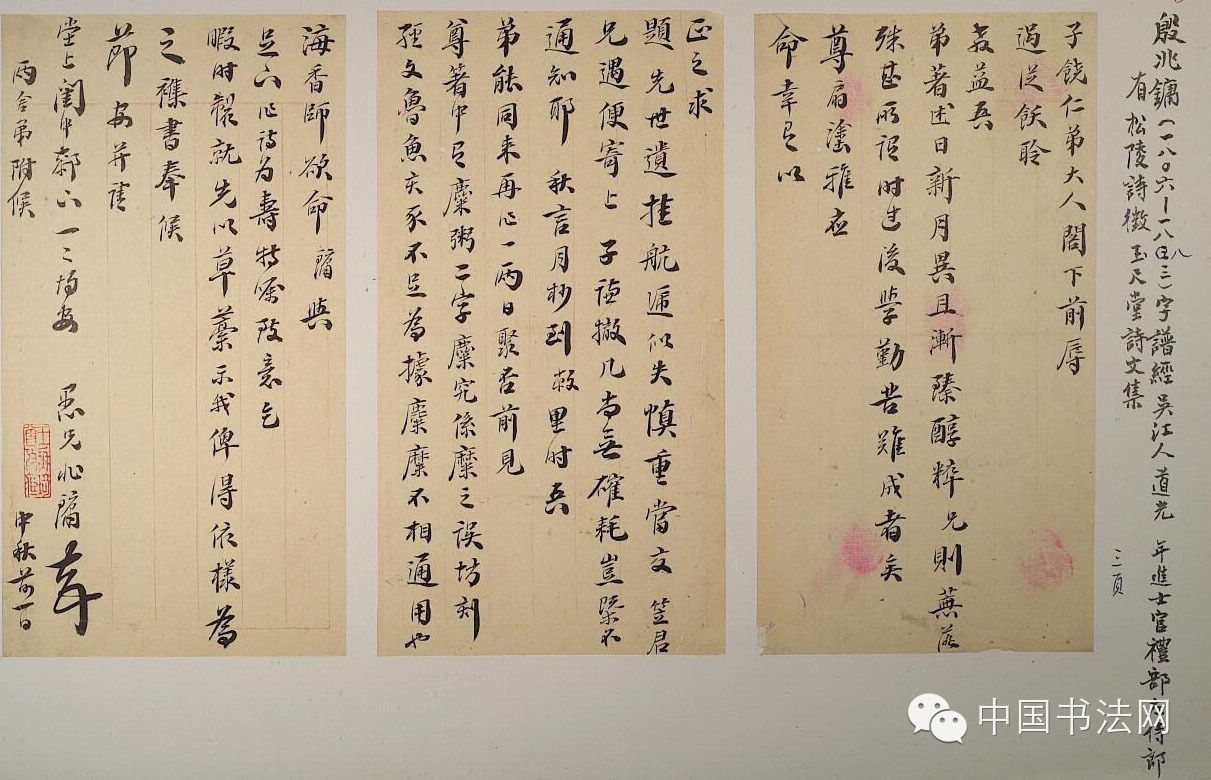 殷兆鏞（一八〇六—一八八三）字譜經吳江人道光 年進士官禮部 侍郎
有松陵詩徵玉尺堂詩文集
三頁
子饒仁弟大人閣下前辱
過從飫聆
教益吾
弟著述日新月異且漸臻醇粹兄則蕪落
殊甚所謂時過後學勤苦難成者矣
尊扇塗雅應
命幸有以
正之求
題先世遺挂航遞似失慎重當交笠君
兄遇便寄上子謙撤几尚無確耗豈槩不
通知耶秋言月杪到敝里時吾
弟能同来再作一兩日聚否前見
尊著中有糜粥二字糜究係糜之誤坊刻
經文魯魚亥豕不足為據糜糜不相通用也
海香師欲命鏞與
足下作詩為壽特屬致意乞
暇時製就先以草藁示我俾得依樣為
之襍書奉候
節安并請
堂上閫中郝下一一均安 愚兄兆鏞頓
兩舍弟附候 中秋前一日
中国书法网